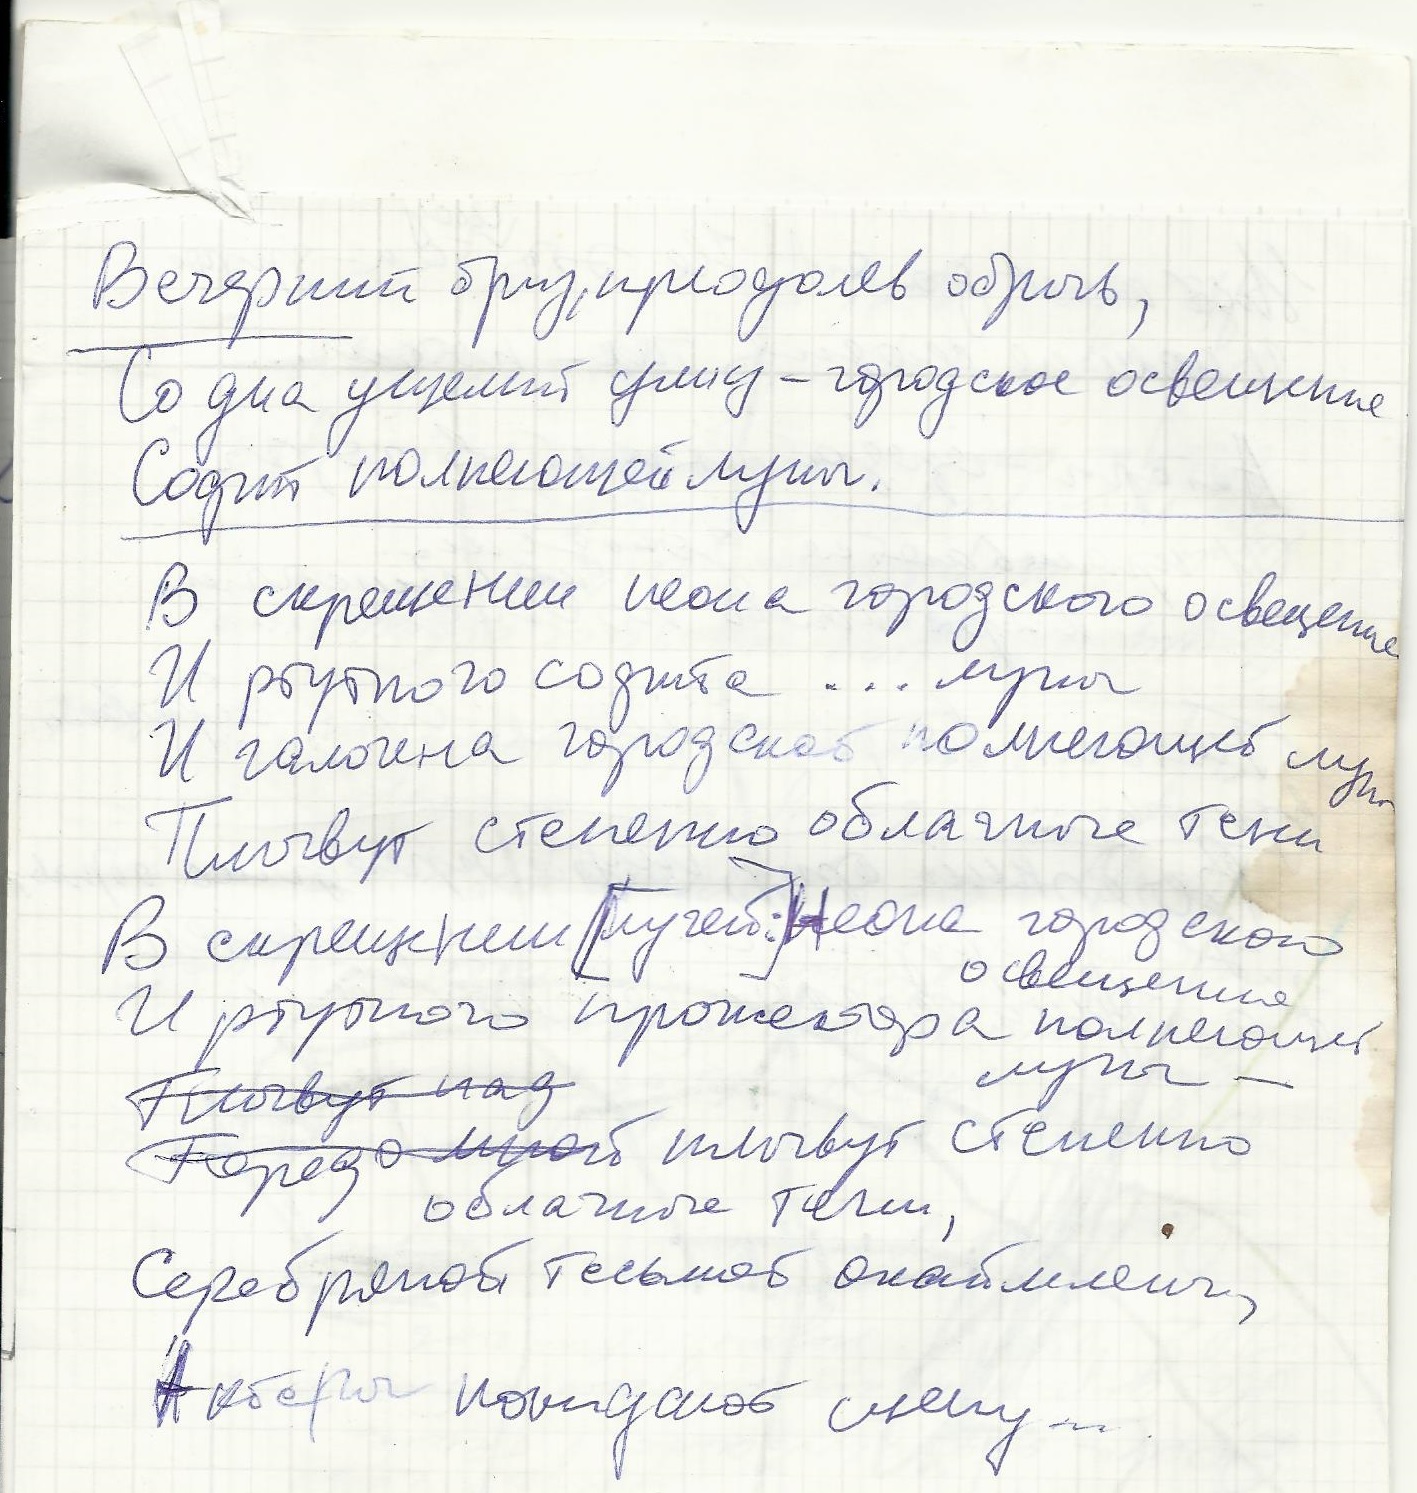 Вечерний бриз, преодолев обрыв,
Со дна ущелий улиц – городское освещение
Софит полнеющей луны.
В скрещении неона городского освещения
И ртутного софита ... луны
И галогена городской полнеющей луны
Плывут степенно облачные тени
В скрещении [лучей:] Неона городского
освещения
И ртутного прожектора полнеющей
луны –
Плывут над
Передо мной плывут степенно
облачные тени,
Серебряной тесьмой окаймлены,
Актеры покидают сцену...